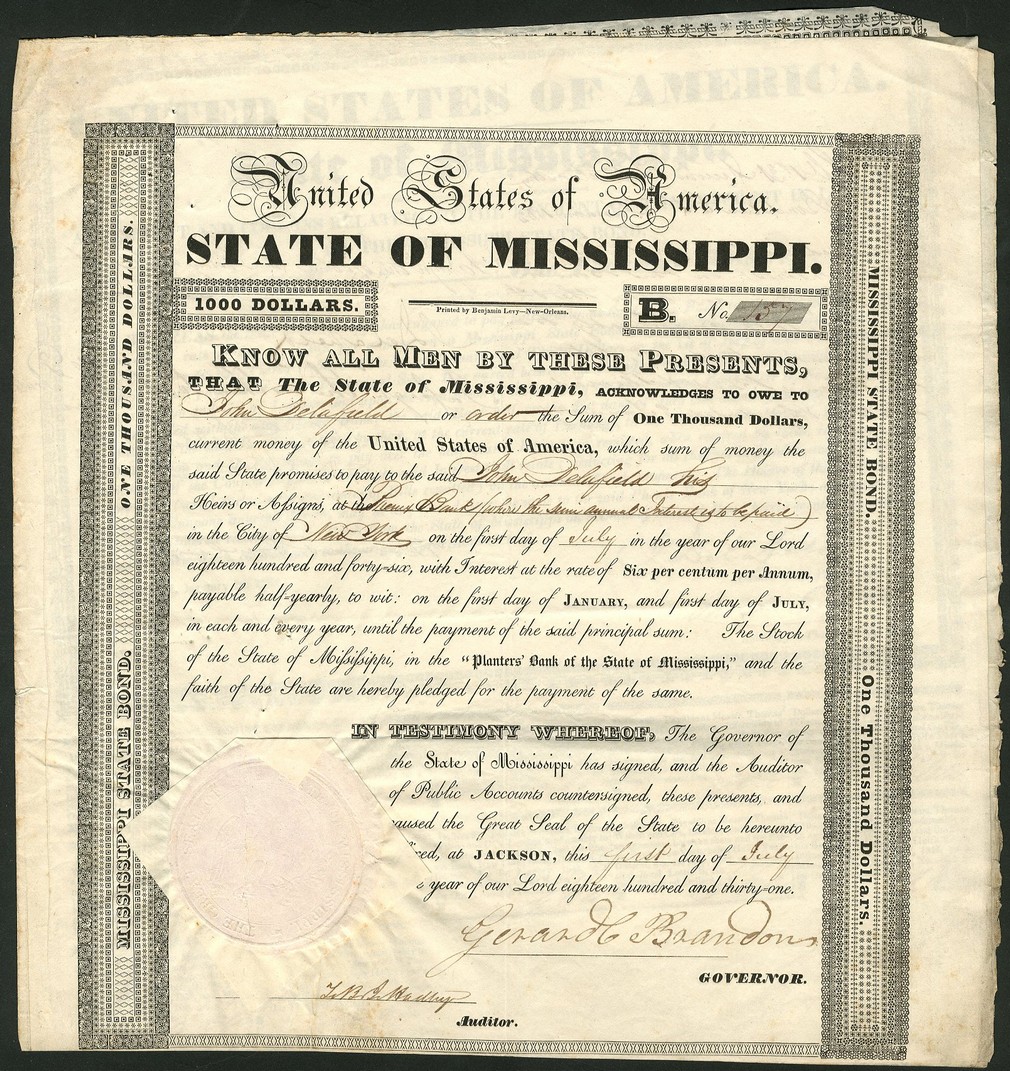 United States of America.
STATE OF MISSISSIPPI.
1000 DOLLARS.
Printed by Benjamin Levy—New-Orleans.
B. No. 157
KNOW ALL MEN BY THESE PRESENTS,
THAT The State of Mississippi, ACKNOWLEDGES TO OWE TO
John Delafield or order the Sum of One Thousand Dollars,
current money of the United States of America, which sum of money the
said State promises to pay to the said John Delafield his
Heirs or Assigns, at the Phenix Bank (where the semi annual Interest is to be paid)
in the City of New York on the first day of July in the year of our Lord
eighteen hundred and forty-six, with Interest at the rate of Six per centum per Annum,
payable half-yearly, to wit: on the first day of JANUARY, and first day of JULY,
in each and every year, until the payment of the said principal sum: The Stock
of the State of Mississippi, in the "Planters' Bank of the State of Mississippi," and the
faith of the State are hereby pledged for the payment of the same.
IN TESTIMONY WHEREOF, The Governor of
the State of Mississippi has signed, and the Auditor
of Public Accounts countersigned, these presents, and
caused the Great Seal of the State to be hereunto
ixed, at JACKSON, this first day of July
year of our Lord eighteen hundred and thirty-one.
Gerard C Brandon
GOVERNOR.
T. B. J. Hadley
Auditor.
MISSISSIPPI STATE BOND. ONE THOUSAND DOLLARS.
MISSISSIPPI STATE BOND. One Thousand Dollars.
UNITED STATES OF AMERICA.